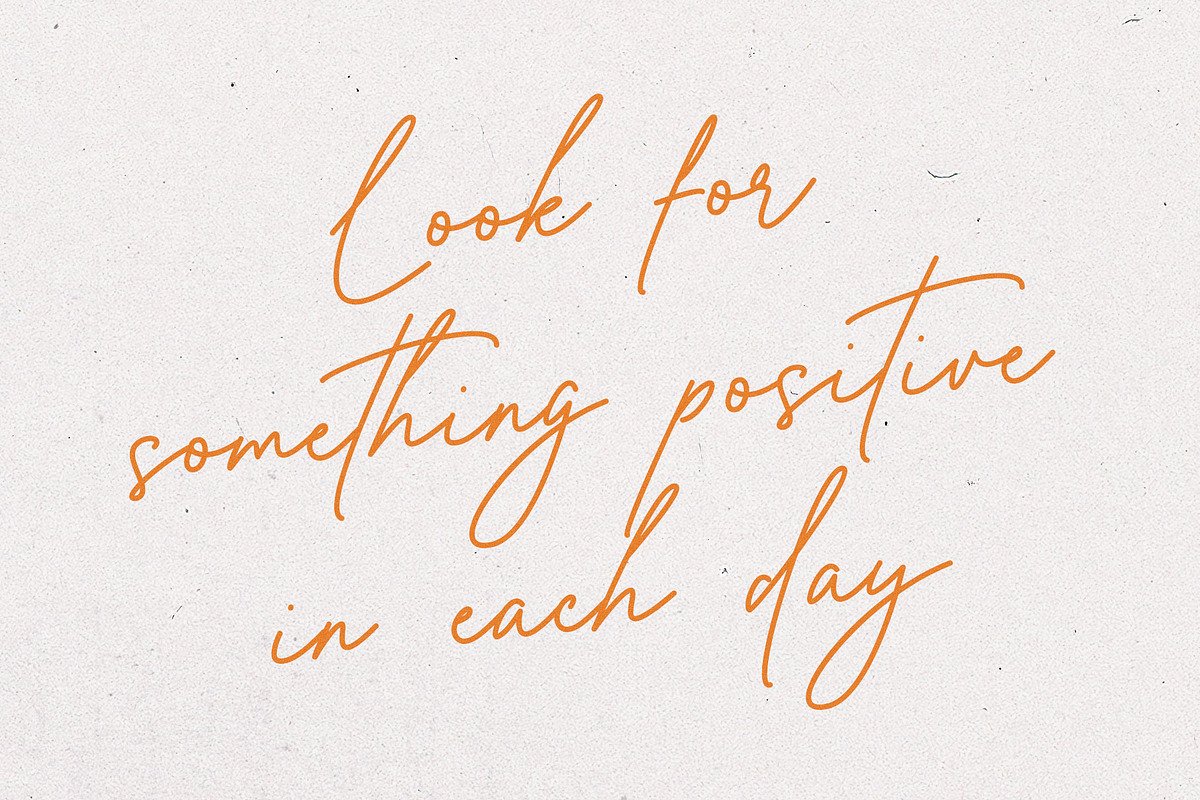 Look for
something positive
in each day